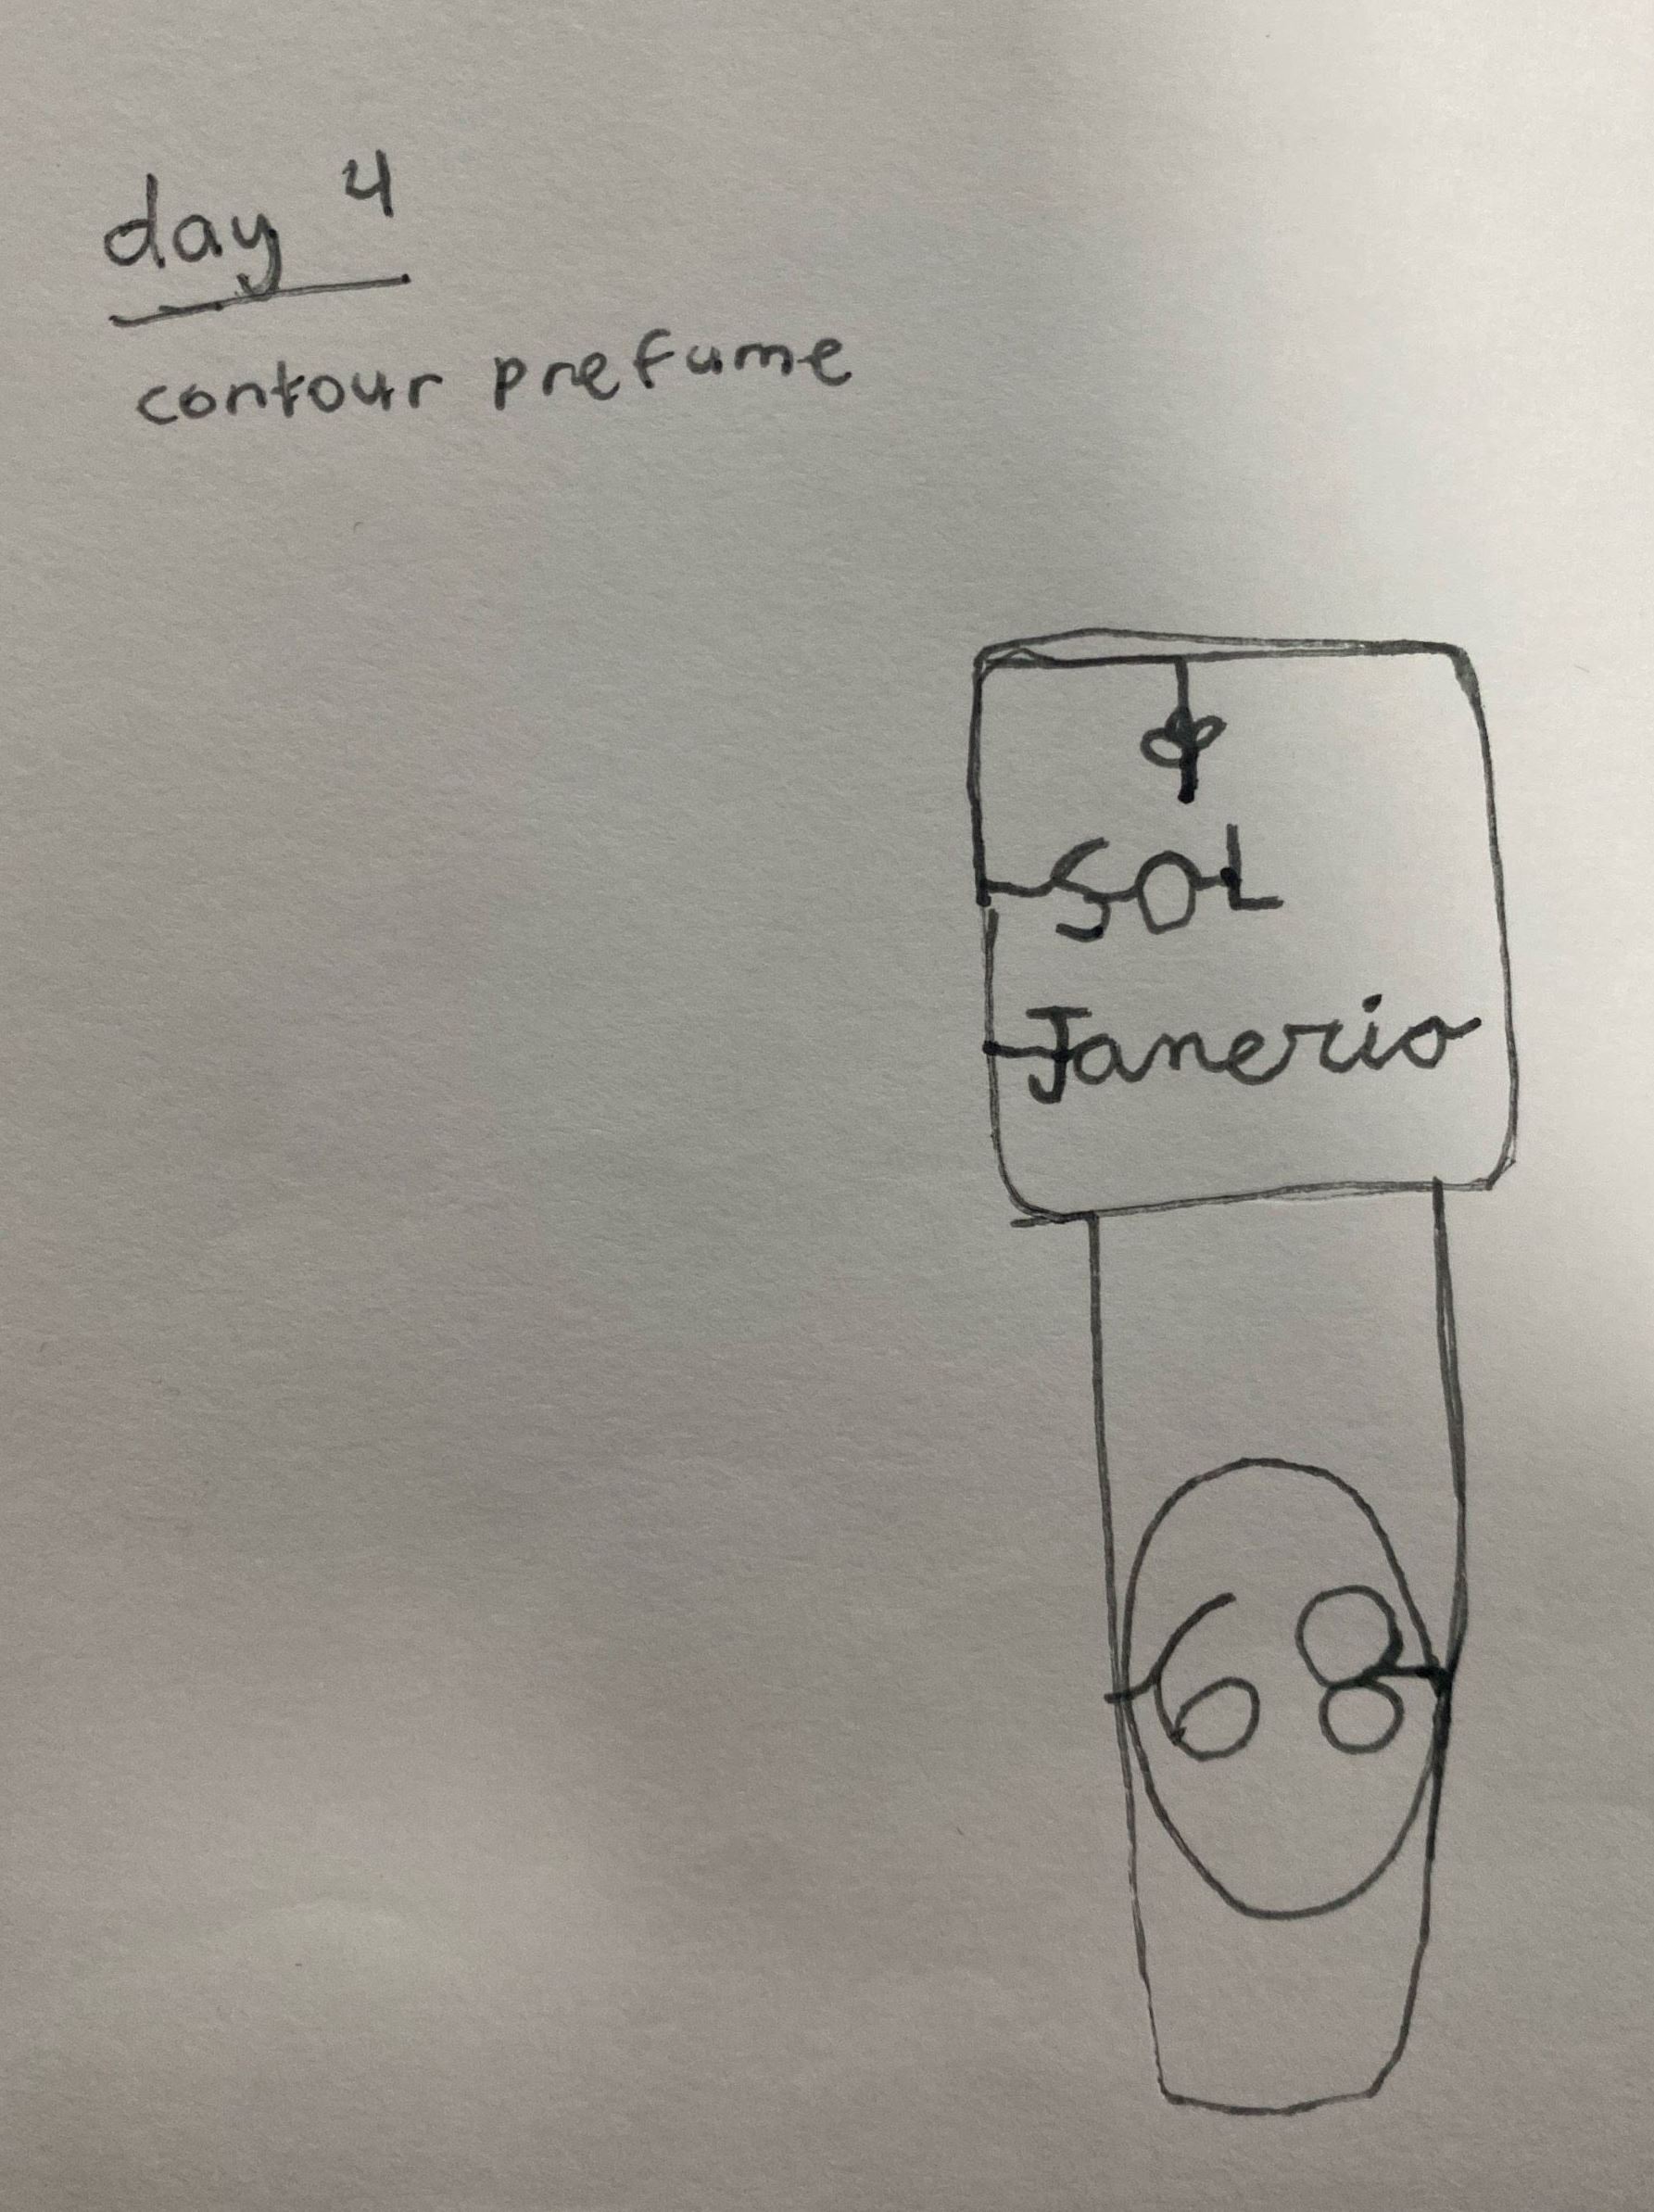 day 4
contour prefume
SOL
Janerio
68